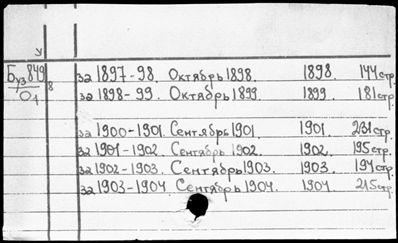 Буз 849
01
8
за 1897-98. Октябрь 1898. 1898. 144 стр.
за 1898-99. Октябрь 1899. 1899. 181 стр.
за 1900-1901. Сентябрь 1901. 1901. 231 стр.
за 1901-1902. Сентябрь 1902. 1902. 195 стр.
за 1902-1903. Сентябрь 1903. 1903. 194 стр.
за 1903-1904 Сентябрь 1904. 1904 215 стр.